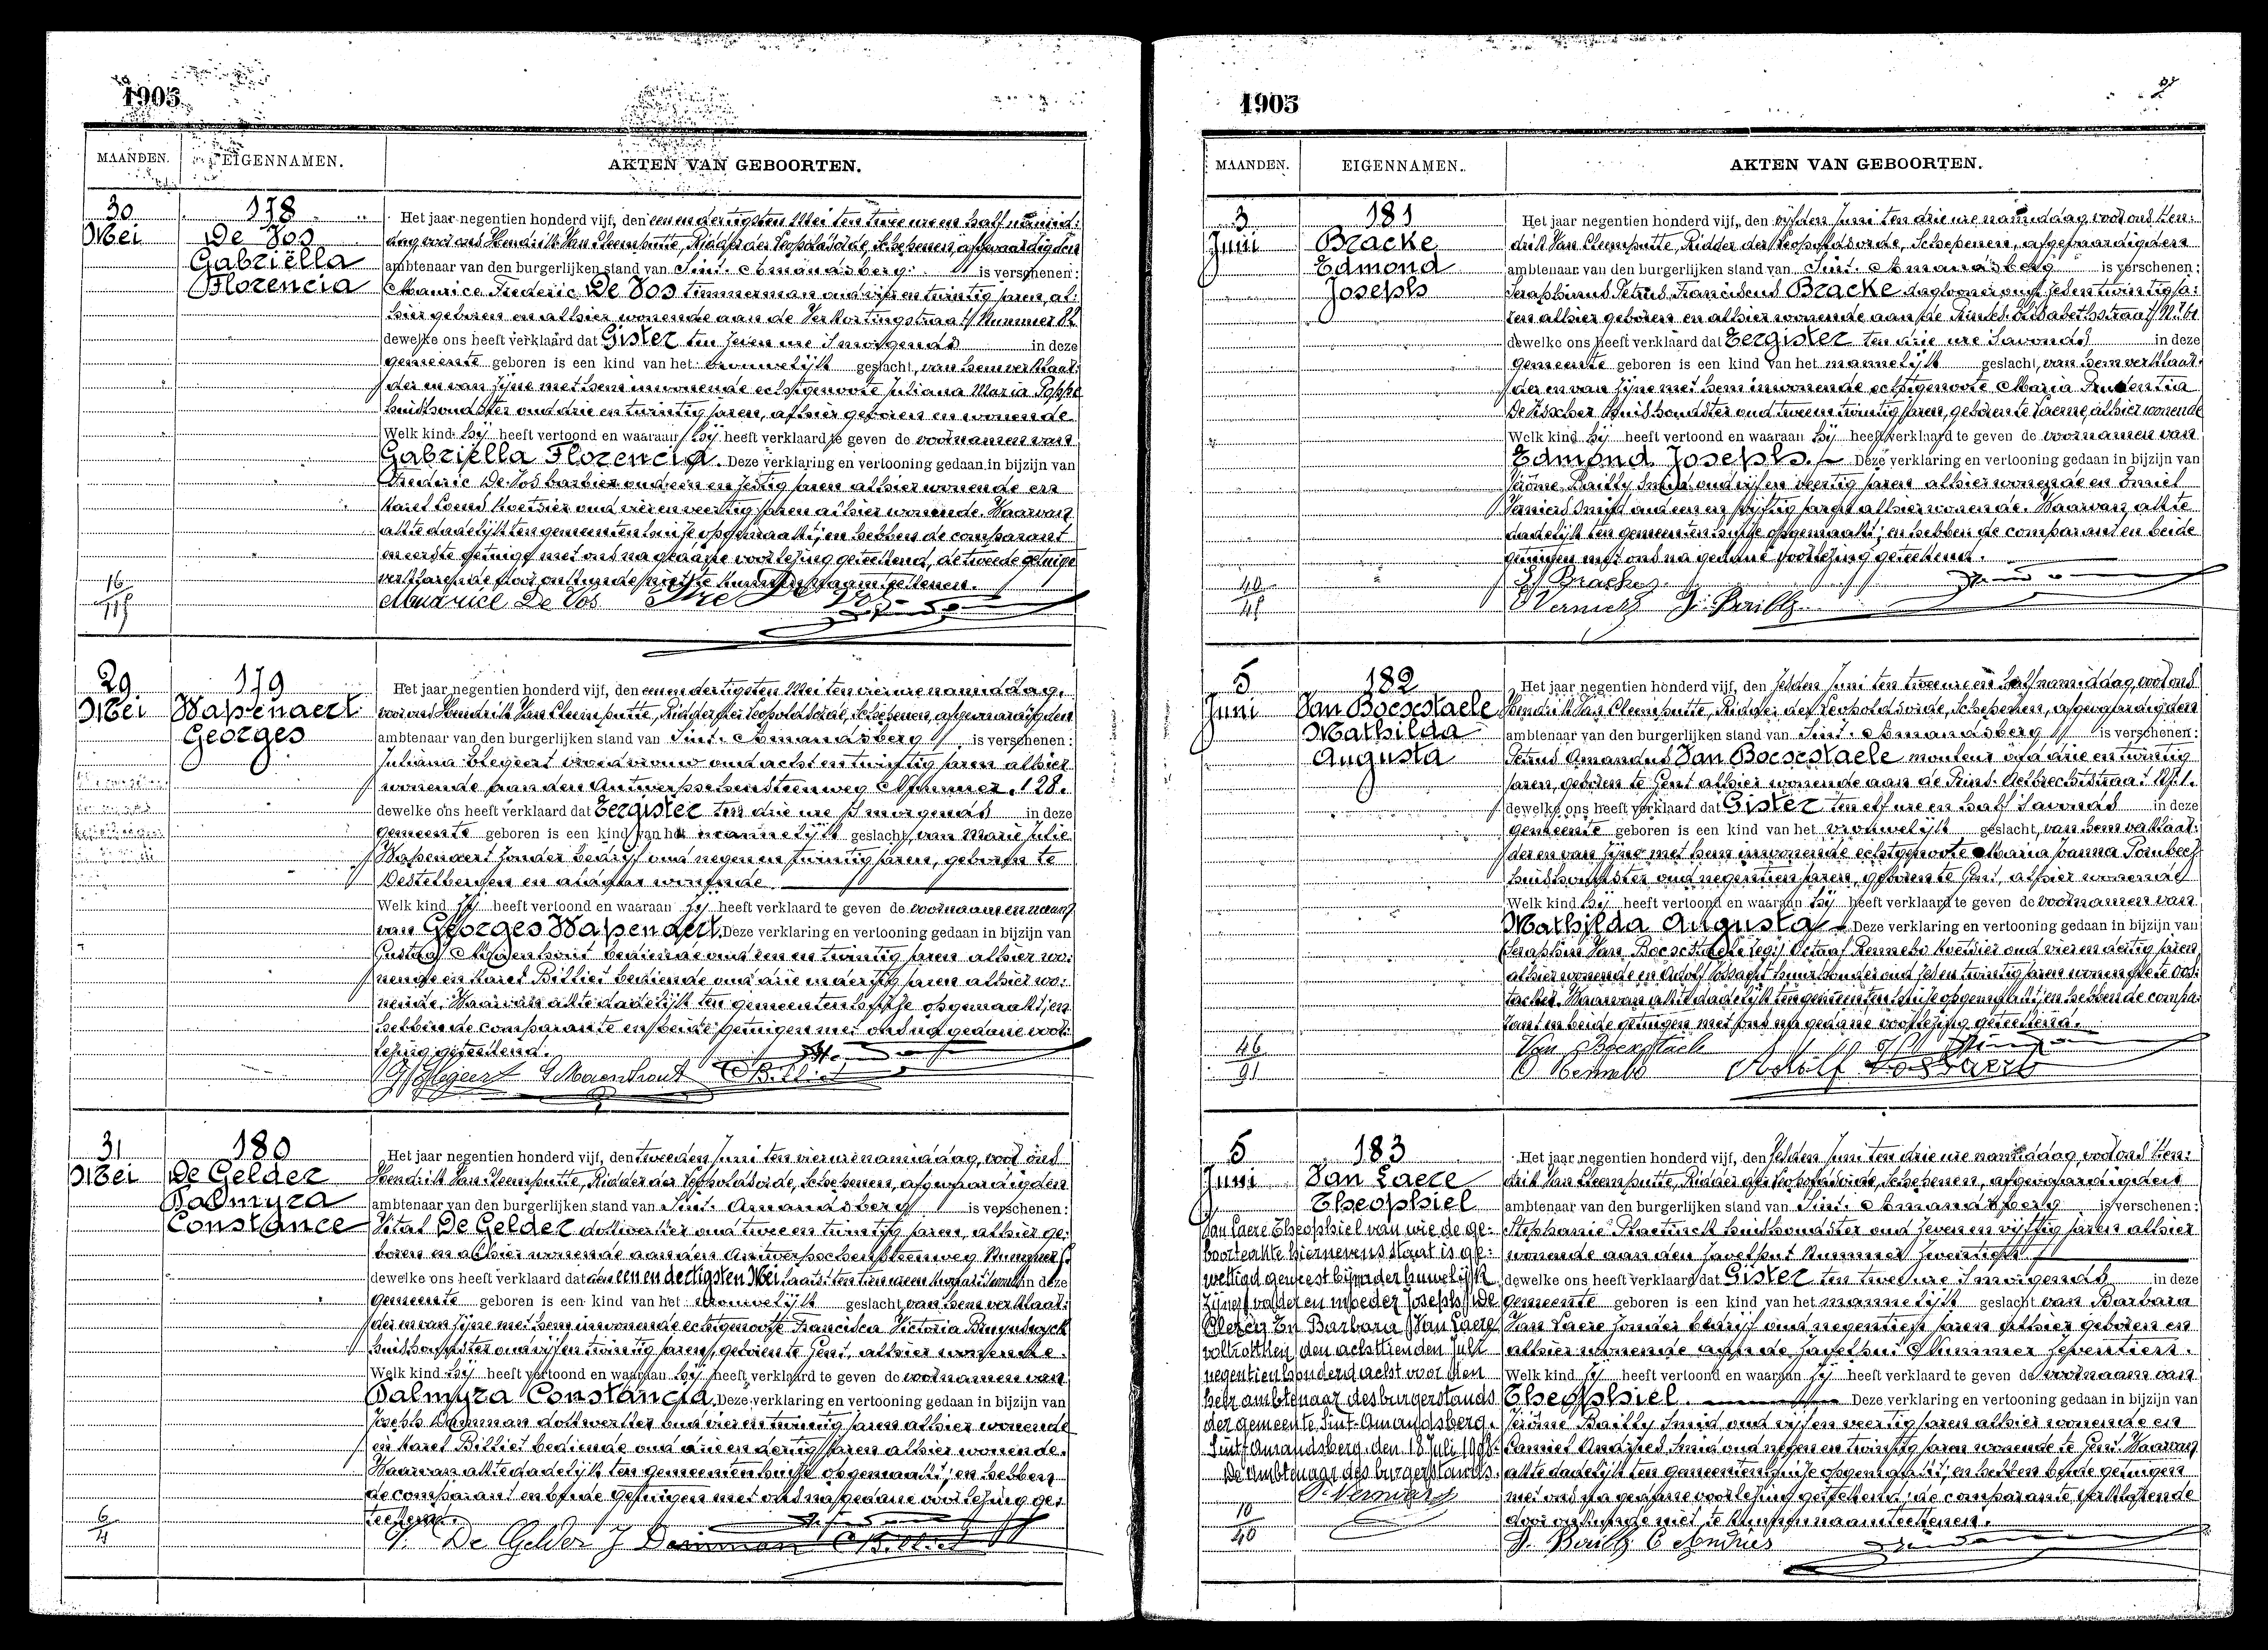 1905
MAANDEN. EIGENNAMEN. AKTEN VAN GEBOORTEN.
30
Mei
178
De Vos
Gabriëlla
Florencia
Het jaar negentien honderd vijf, den een en dertigsten Mei ten twee ure en half namid:
dag voor ons Hendrik Van Cleemputte, Ridder der Leopoldsorde, Schepenen, afgevaardigden
ambtenaar van den burgerlijken stand van Sint-Amandsberg is verschenen:
Maurice Frederic De Vos timmerman oud vijf en twintig jaren, al:
hier geboren en alhier wonende aan de Verkortingstraat Nummer 82
dewelke ons heeft verklaard dat Gister ten zeven ure 's morgends in deze
gemeente geboren is een kind van het vrouwelijk geslacht, van hem verklaar:
der en van zijne met hem inwonende echtgenoote Juliana Maria Poppe
huishoudster oud drie en twintig jaren, alhier geboren en wonende
Welk kind hij heeft vertoond en waaraan hij heeft verklaard te geven de voornamen van
Gabriëlla Florencia. Deze verklaring en vertooning gedaan in bijzijn van
Frederic De Vos barbier oud een en zestig jaren alhier wonende en
Karel Coens koetsier oud vier en veertig jaren alhier wonende. Waarvan
akte dadelijk ten gemeentenhuize opgemaakt; en hebben de comparant
en eerste getuige met ons na gedane voorlezing geteekend, de tweede getuige
verklarende door onkunde niet te kunnen naamteekenen.
Maurice De Vos
16
115
29
Mei
179
Wapenaert
Georges
Het jaar negentien honderd vijf, den een en dertigsten Mei ten vier ure namiddag,
voor ons Hendrik Van Cleemputte, Ridder der Leopoldsorde, Schepenen, afgevaardigden
ambtenaar van den burgerlijken stand van Sint-Amandsberg is verschenen:
Juliana Blegeert vroedvrouw oud acht en twintig jaren alhier
wonende aan den Antwerpschensteenweg Nummer 128.
dewelke ons heeft verklaard dat Eergister ten drie ure 's morgends in deze
gemeente geboren is een kind van het mannelijk geslacht, van Marie Julie
Wapenaert zonder bedrijf oud negen en twintig jaren, geboren te
Destelbergen en aldaar wonende
Welk kind zij heeft vertoond en waaraan zij heeft verklaard te geven de voornaam en naam
van Georges Wapenaert. Deze verklaring en vertooning gedaan in bijzijn van
Gustaaf Moerenhout bediende oud een en twintig jaren alhier wo:
nende en Karel Billiet bediende oud drie en dertig jaren alhier wo:
nende. Waarvan akte dadelijk ten gemeentenhuize opgemaakt; en
hebben de comparante en beide getuigen met ons na gedane voor:
lezing geteekend.
31
Mei
180
De Gelder
Palmyra
Constance
Het jaar negentien honderd vijf, den tweeden Juni ten vier ure namiddag, voor ons
Hendrik Van Cleemputte, Ridder der Leopoldsorde, Schepenen, afgevaardigden
ambtenaar van den burgerlijken stand van Sint-Amandsberg is verschenen:
Vital De Gelder dokwerker oud twee en twintig jaren, alhier ge:
boren en alhier wonende aan den Antwerpschensteenweg Nummer
dewelke ons heeft verklaard dat den een en dertigsten Mei laatst ten tien ure en kwart 's avonds in deze
gemeente geboren is een kind van het vrouwelijk geslacht van hem verklaar:
der en van zijne met hem inwonende echtgenoote Francisca Victoria
huishoudster oud vijf en twintig jaren, geboren te Gent, alhier wonende.
Welk kind hij heeft vertoond en waaraan hij heeft verklaard te geven de voornamen van
Palmyra Constancia. Deze verklaring en vertooning gedaan in bijzijn van
Joseph Damman dokwerker oud vier en twintig jaren alhier wonende
en Karel Billiet bediende oud drie en dertig jaren alhier wonende.
Waarvan akte dadelijk ten gemeentenhuize opgemaakt; en hebben
de comparant en beide getuigen met ons na gedane voorlezing ge:
teekend.
V. De Gelder J Damman
6
4
1905
MAANDEN. EIGENNAMEN. AKTEN VAN GEBOORTEN.
3
Juni
181
Bracke
Edmond
Joseph
Het jaar negentien honderd vijf, den vijfden Juni ten drie ure namiddag, voor ons Hen:
drik Van Cleemputte, Ridder der Leopoldsorde, Schepenen, afgevaardigden
ambtenaar van den burgerlijken stand van Sint-Amandsberg is verschenen:
Seraphinus Petrus Franciscus Bracke daglooner oud zes en twintig ja:
ren alhier geboren en alhier wonende aan de Prinses Elisabethstraat Nr 61
dewelke ons heeft verklaard dat Eergister ten drie ure 's avonds in deze
gemeente geboren is een kind van het mannelijk geslacht, van hem verklaar:
der en van zijne met hem inwonende echtgenoote Maria Prudentia
De Visscher huishoudster oud twee en twintig jaren, geboren te Laerne, alhier wonende
Welk kind hij heeft vertoond en waaraan hij heeft verklaard te geven de voornamen van
Edmond Joseph. Deze verklaring en vertooning gedaan in bijzijn van
Jérôme Bailly smid oud vijf en veertig jaren alhier wonende en Emiel
Verniers smid oud een en vijftig jaren alhier wonende. Waarvan akte
dadelijk ten gemeentenhuize opgemaakt; en hebben de comparant en beide
getuigen met ons na gedane voorlezing geteekend.
S. Bracke
E Verniers J. Bailly
40
45
5
Juni
182
Van Boesestaele
Mathilda
Augusta
Het jaar negentien honderd vijf, den zesden Juni ten twee ure en half namiddag, voor ons
Hendrik Van Cleemputte, Ridder der Leopoldsorde, Schepenen, afgevaardigden
ambtenaar van den burgerlijken stand van Sint-Amandsberg is verschenen:
Petrus Amandus Van Boesestaele monteur oud drie en twintig
jaren, geboren te Gent alhier wonende aan de Prins Aelbrechtstraat Nr. 1.
dewelke ons heeft verklaard dat Gister ten elf ure en half 's avonds in deze
gemeente geboren is een kind van het vrouwelijk geslacht, van hem verklaar:
der en van zijne met hem inwonende echtgenoote Maria Joanna
huishoudster oud negentien jaren, geboren te Gent, alhier wonende
Welk kind hij heeft vertoond en waaraan hij heeft verklaard te geven de voornamen van
Mathilda Augusta Deze verklaring en vertooning gedaan in bijzijn van
Seraphin Van Boesestaele lezij Octaaf Rennebo koetsier oud vier en dertig jaren
alhier wonende en Adolf Lossaert huurhouder oud zes en twintig jaren wonende te Oos:
tacker. Waarvan akte dadelijk ten gemeentenhuize opgemaakt; en hebben de compa:
rant en beide getuigen met ons na gedane voorlezing geteekend.
Van Boesestaele
O Rennebo Adolf Lossaert
46
91
5
Juni
183
Van Laere
Theophiel
Van Laere Theophiel van wie de ge:
boorteakte hiernevens staat is ge:
wettigd geweest bij der huwelijk
zijner vader en moeder Joseph De
Clercq En Barbara Van Laere
voltrokken den achttienden Juli
negentienhonderd acht voor den
heer ambtenaar des burgerstands
der gemeente Sint-Amandsberg.
Sint-Amandsberg, den 18 Juli 1908.
De Ambtenaar des burgerstands.
10
40
Het jaar negentien honderd vijf, den zesden Juni ten drie ure namiddag, voor ons Hen:
drik Van Cleemputte, Ridder der Leopoldsorde, Schepenen, afgevaardigden
ambtenaar van den burgerlijken stand van Sint-Amandsberg is verschenen:
Stephanie Praetinck huishoudster oud zeven en vijftig jaren alhier
wonende aan den Zavelput Nummer zeventien
dewelke ons heeft verklaard dat Gister ten twee ure 's morgends in deze
gemeente geboren is een kind van het mannelijk geslacht van Barbara
Van Laere zonder bedrijf oud negentien jaren alhier geboren en
alhier wonende aan de Zavelput Nummer zeventien.
Welk kind zij heeft vertoond en waaraan zij heeft verklaard te geven de voornaam van
Theophiel. Deze verklaring en vertooning gedaan in bijzijn van
Jérôme Bailly smid oud vijf en veertig jaren alhier wonende en
Camiel Andries smid oud negen en twintig jaren wonende te Gent. Waarvan
akte dadelijk ten gemeentenhuize opgemaakt; en hebben beide getuigen
met ons na gedane voorlezing geteekend; de comparante verklarende
door onkunde niet te kunnen naamteekenen.
J. Bailly C Andries